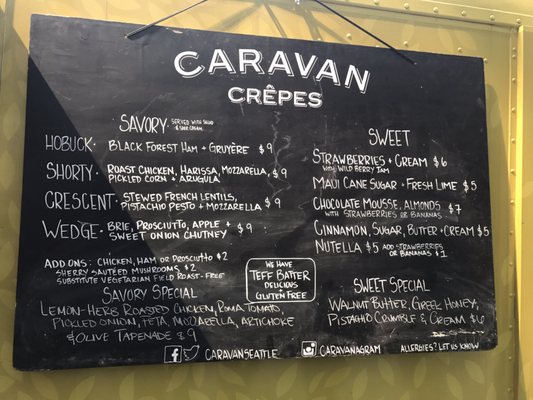 CARAVAN
CRÊPES
SAVORY SERVED WITH SALAD
& SOUR CREAM
HOBUCK· BLACK FOREST HAM + GRUYÈRE $9
SHORTY· ROAST CHICKEN, HARISSA, MOZZARELLA, $9
PICKLED CORN + ARUGULA
CRESCENT· STEWED FRENCH LENTILS,
PISTACHIO PESTO + MOZZARELLA $9
WEDGE· BRIE, PROSCIUTTO, APPLE + $9
SWEET ONION CHUTNEY
ADD ONS: CHICKEN, HAM OR PROSCIUTTO $2
SHERRY SAUTÉED MUSHROOMS $2
SUBSTITUTE VEGETARIAN FIELD ROAST - FREE
SAVORY SPECIAL
LEMON-HERB ROASTED CHICKEN, ROMA TOMATO,
PICKLED ONION, FETA, MOZZARELLA, ARTICHOKE
& OLIVE TAPENADE $9
WE HAVE
TEFF BATTER
DELICIOUS
GLUTEN FREE
SWEET
STRAWBERRIES + CREAM $6
WITH WILD BERRY JAM
MAUI CANE SUGAR + FRESH LIME $5
CHOCOLATE MOUSSE, ALMONDS $7
WITH STRAWBERRIES OR BANANAS
CINNAMON, SUGAR, BUTTER + CREAM $5
NUTELLA $5 ADD STRAWBERRIES
OR BANANAS $1
SWEET SPECIAL
WALNUT BUTTER, GREEK HONEY,
PISTACHIO CRUMBLE & CREAM $6
CARAVANSEATTLE
CARAVANAGRAM
ALLERGIES? LET US KNOW